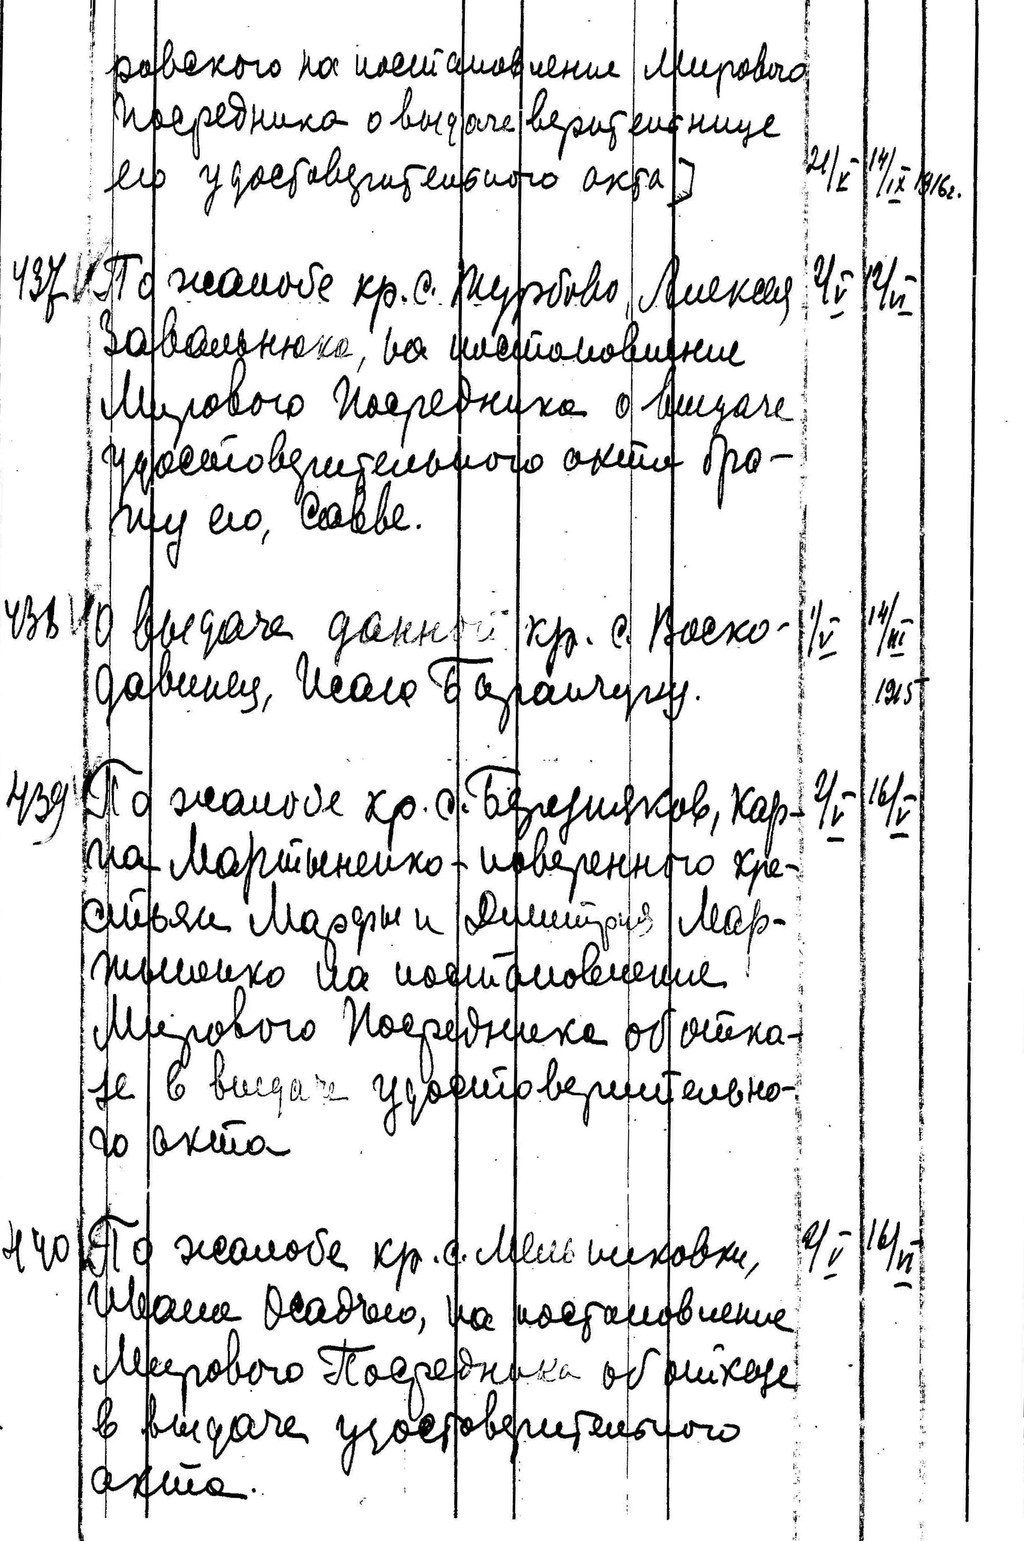 ровского на постановление Мирового
Посредника о выдаче верителнице
его удостоверительного акта] 21/X 14/IX 1916г.
437 По жалобе кр. с. Журбово, Алексея 2/V 12/VI
Завальнюка, на постановление
Мирового Посредника о выдаче
удостоверительного акта бра-
ту его, Савве.
438 О выдаче данной кр. с. Воско- 1/V 14/III
давинец, Исаю Баранчуку. 1915
439 По жалобе кр. с. Бердияков, Кар- 2/V 16/V
па Мартыненко - поверенного кре-
стьян Марфы и Димитрия Мар-
тыненко на постановление
Мирового Посредника об отка-
зе в выдаче удостоверительно-
го акта
440 По жалобе кр. с. Меньшиковки, 2/V 16/VI
Ивана Осадчего, на постановление
Мирового Посредника об отказе
в выдаче удостоверительного
акта.